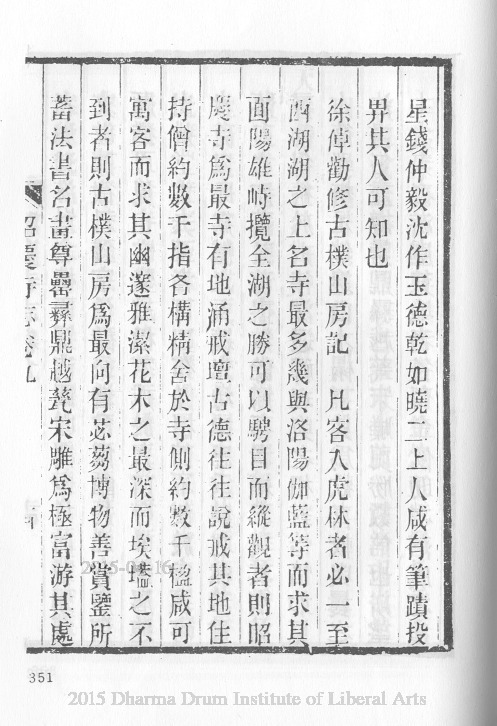 星錢仲毅沈作玉德乾如曉二上人咸有筆蹟投
畀其人可知也
徐倬勸修古樸山房記　凡客入虎林者必一至
西湖湖之上名寺最多幾與洛陽伽藍等而求其
面陽雄峙攬全湖之勝可以騁目而縱觀者則昭
慶寺爲最寺有地涌戒壇古德往往說戒其地住
持僧約數千指各構精舍於寺側約數千楹咸可
寓客而求其幽邃雅潔花木之最深而埃壒之不
到者則古樸山房爲最向有苾蒭博物善賞鑒所
蓄法書名畫尊罍彞鼎越甆宋雕爲極富游其處
昭慶寺志卷九
351
2015 Dharma Drum Institute of Liberal Arts